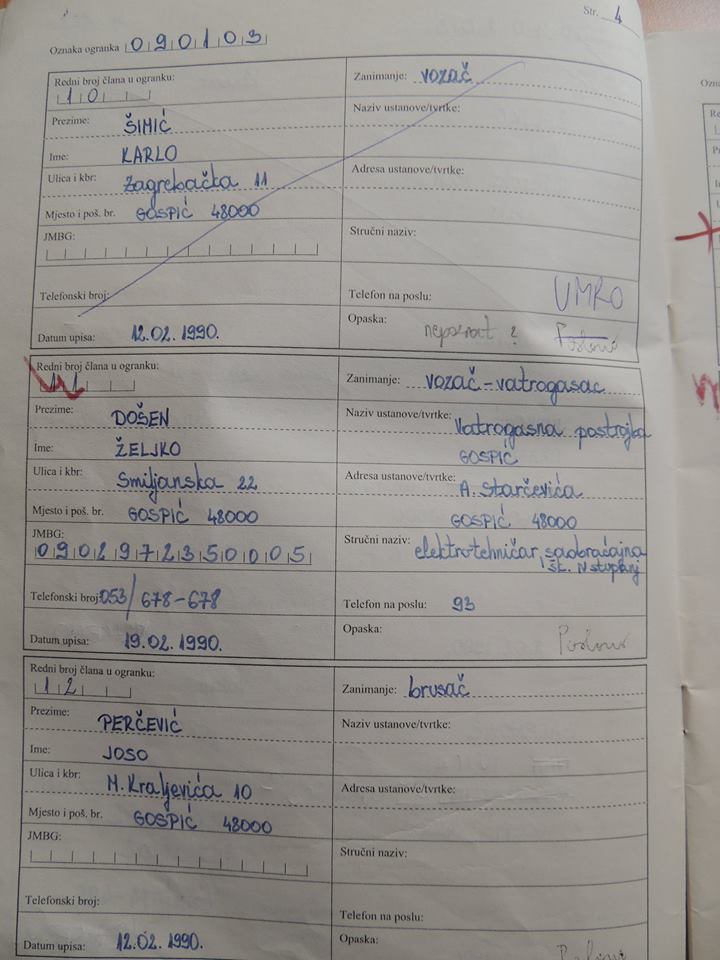 Str. 4
Oznaka ogranka 090103
Redni broj člana u ogranku:
10
Zanimanje: vozač
Prezime: ŠIMIĆ
Naziv ustanove/tvrtke:
Ime: KARLO
Ulica i kbr: Zagrebačka 11
Adresa ustanove/tvrtke:
Mjesto i poš. br. GOSPIĆ 48000
JMBG:
Stručni naziv:
Telefonski broj:
Telefon na poslu: UMRO
Datum upisa: 12.02.1990.
Opaska: nepoznat ?
Redni broj člana u ogranku:
11
Zanimanje: vozač-vatrogasac
Prezime: DOŠEN
Naziv ustanove/tvrtke: Vatrogasna postrojba
GOSPIĆ
Ime: ŽELJKO
Ulica i kbr: Smiljanska 22
Adresa ustanove/tvrtke: A. Starčevića
Mjesto i poš. br. GOSPIĆ 48000
GOSPIĆ 48000
JMBG:
0902972350005
Stručni naziv: elektrotehničar, saobraćajna
šk. IV stupanj
Telefonski broj: 053/678-678
Telefon na poslu: 93
Datum upisa: 19.02.1990.
Opaska:
Redni broj člana u ogranku:
12
Zanimanje: brusač
Prezime: PERČEVIĆ
Naziv ustanove/tvrtke:
Ime: JOSO
Ulica i kbr: M. Kraljevića 10
Adresa ustanove/tvrtke:
Mjesto i poš. br. GOSPIĆ 48000
JMBG:
Stručni naziv:
Telefonski broj:
Telefon na poslu:
Datum upisa: 12.02.1990.
Opaska: